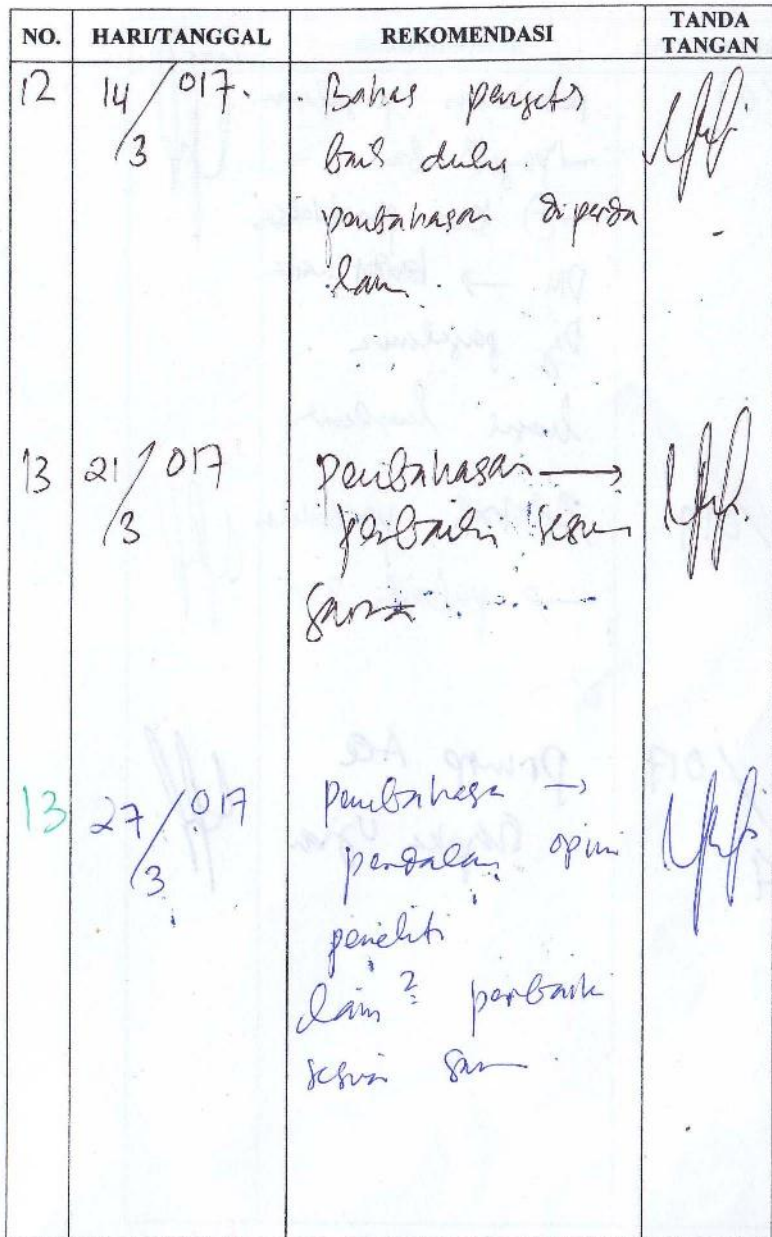 NO. HARI/TANGGAL REKOMENDASI TANDA TANGAN
12 14/3 017. Bahas
dulu
pembahasan diperda
lam.
13 21/3 017 pembahasan →
perbaiki sesuai
saran
13 27/3 017 pembahasa →
perdalam opini
peneliti
lain² perbaiki
sesuai saran